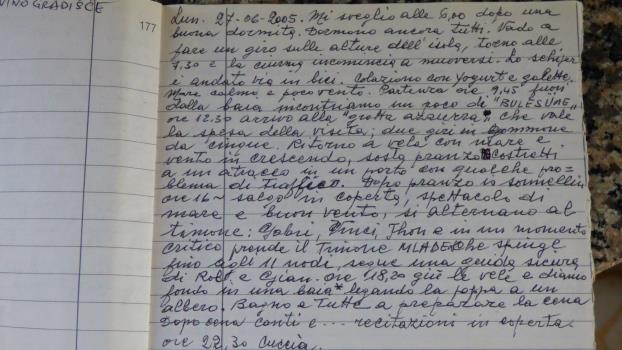 VINOGRADIŠĆE
177
Lun. 27-06-2005. Mi sveglio alle 6,00 dopo una
buona dormita. Dormono ancora tutti. Vado a
fare un giro sulle alture dell'isola, torno alle
7,30 e la ciurma incomincia a muoversi. Lo schiper
è andato via in bici. Colazione con yogurt e galette.
Mare calmo e poco vento. Partenza ore 9,45 fuori
dalla baia incontriamo un poco di "BULESUME"
ore 12.30 arrivo alla "grotta azzurra" che vale
la spesa della visita; due giri in gommone
da cinque. Ritorno a vela con mare e
vento in crescendo, sosta pranzo costretti
a un attracco in un porto con qualche pro=
blema di traffico. Dopo pranzo
ore 16~ salgo in coperta, spettacolo di
mare e buon vento, si alternano al
timone: Gabri, Vinci, Jhon e in un momento
critico prende il timone MLADEN che spinge
fino agli 11 nodi, segue una guida sicura
di Rob. e Gian. ore 18,20 giù le vele e diamo
fondo in una baia* legando la poppa a un
albero. Bagno e tutti a preparare la cena
Dopo cena conti e... recitazioni in coperta.
ore 22,30 cuccia.